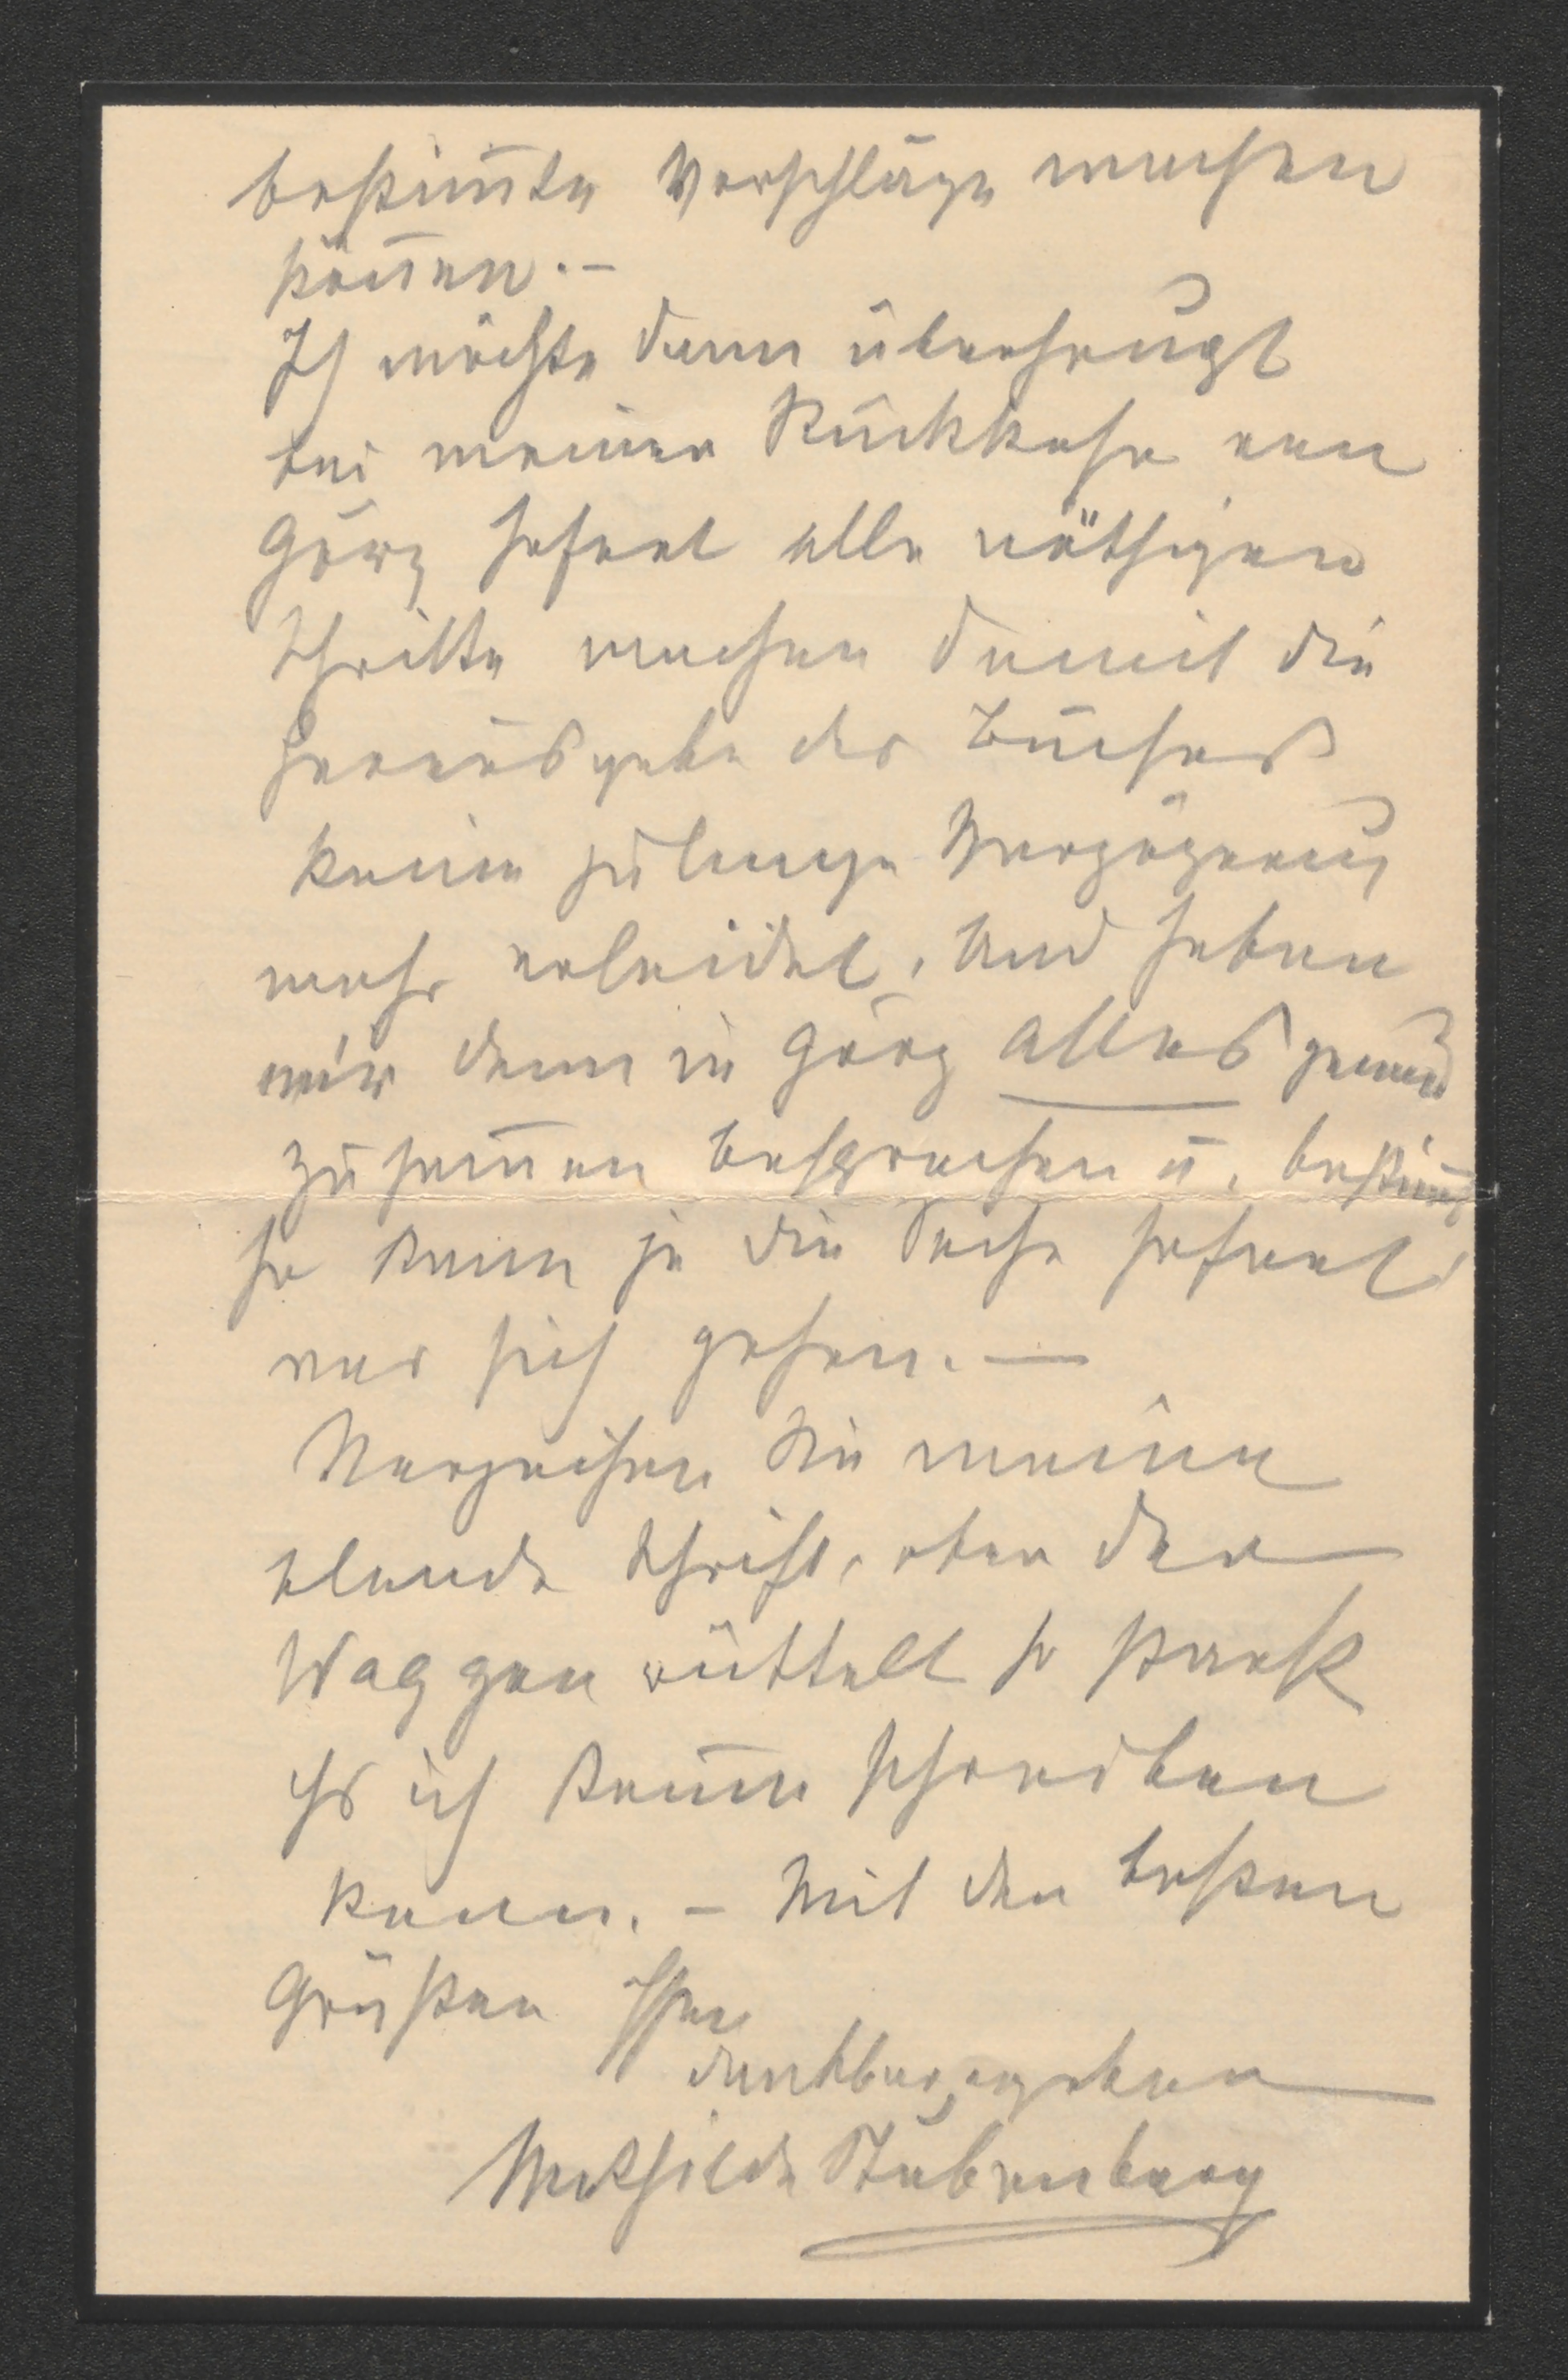 bestim̄te Vorschläge machen
kön̄en. –
Ich möchte dann überhaupt
bei meiner Rückkehr von
Görz sofort alle nöthigen
Schritte machen damit die
Herausgabe des Buches
keine zu lange Verzögerung
mehr erleidet. Und haben
wir dann in Görz alles genau
zusam̄en besprochen u. bestim̄t
so kann ja die Sache sofort
vor sich gehen. —
Verzeihen Sie meine
elende Schrift, aber der
Waggon rüttelt so stark
ich kaum schreiben
kann. – Mit den besten
Grüßen Ihre
dankbar ergebene
Mathilde Stubenberg